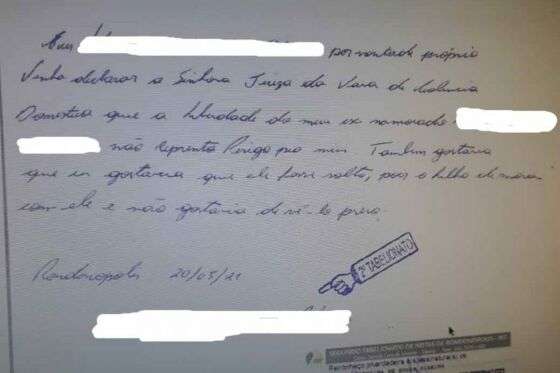 Eu por vontade própria
Venho declarar a Senhora Juiza da Vara de Violencia
Domestica que a liberdade do meu ex namorado
não representa Perigo pra mim. Tambem gostaria
que eu gostaria que ele fosse solto, pois o filho dele mora
com ele e não gostaria de vê-lo preso.
Rondonopolis 20/05/21
2º TABELIONATO
SEGUNDO TABELIONATO DE NOTAS DE RONDONÓPOLIS - MT